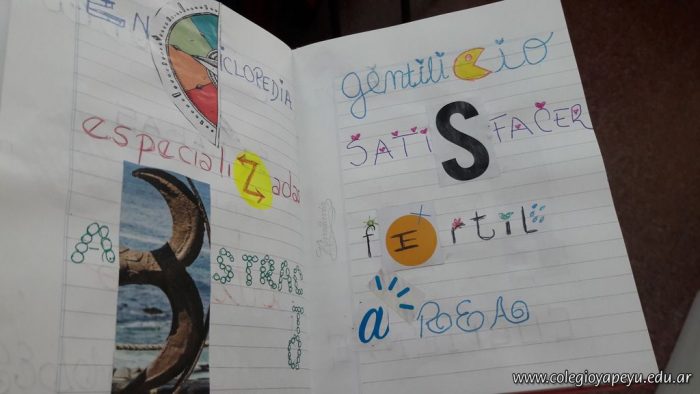 ENCICLOPEDIA
especialiZadas
ABSTRACTO
gentilicio
SATISFACER
fErtil
www.colegioyapeyu.edu.ar